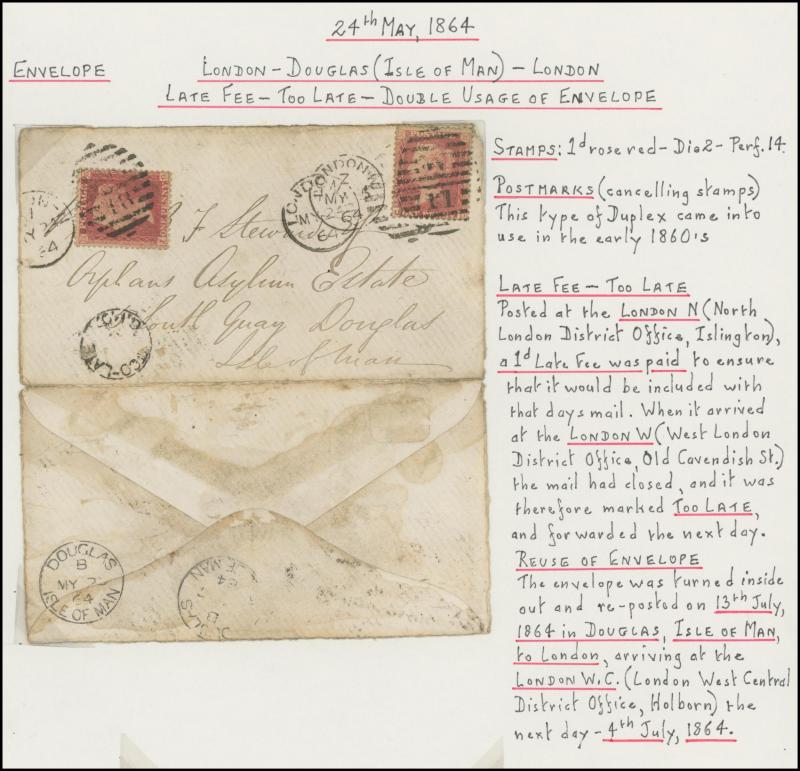 24th May, 1864
Envelope
London - Douglas (Isle of Man) - London
Late Fee - Too Late - Double Usage of Envelope
Stamps: 1d rose red - Die 2 - Perf. 14.
Postmarks (cancelling stamps)
This type of Duplex came into
use in the early 1860's
Late Fee - Too Late
Posted at the London N (North
London District Office, Islington),
a 1d Late Fee was paid to ensure
that it would be included with
that days mail. When it arrived
at the London W (West London
District Office, Old Cavendish St.)
the mail had closed, and it was
therefore marked Too Late,
and forwarded the next day.
Reuse of Envelope
The envelope was turned inside
out and re-posted on 13th July,
1864 in Douglas, Isle of Man,
to London, arriving at the
London W.C. (London West Central
District Office, Holborn) the
next day - 4th July, 1864.
LONDON
MY
64
F Steward
Orphans Asylum Estate
South Quay Douglas
Isle of Man
DOUGLAS
B
MY
64
ISLE OF MAN